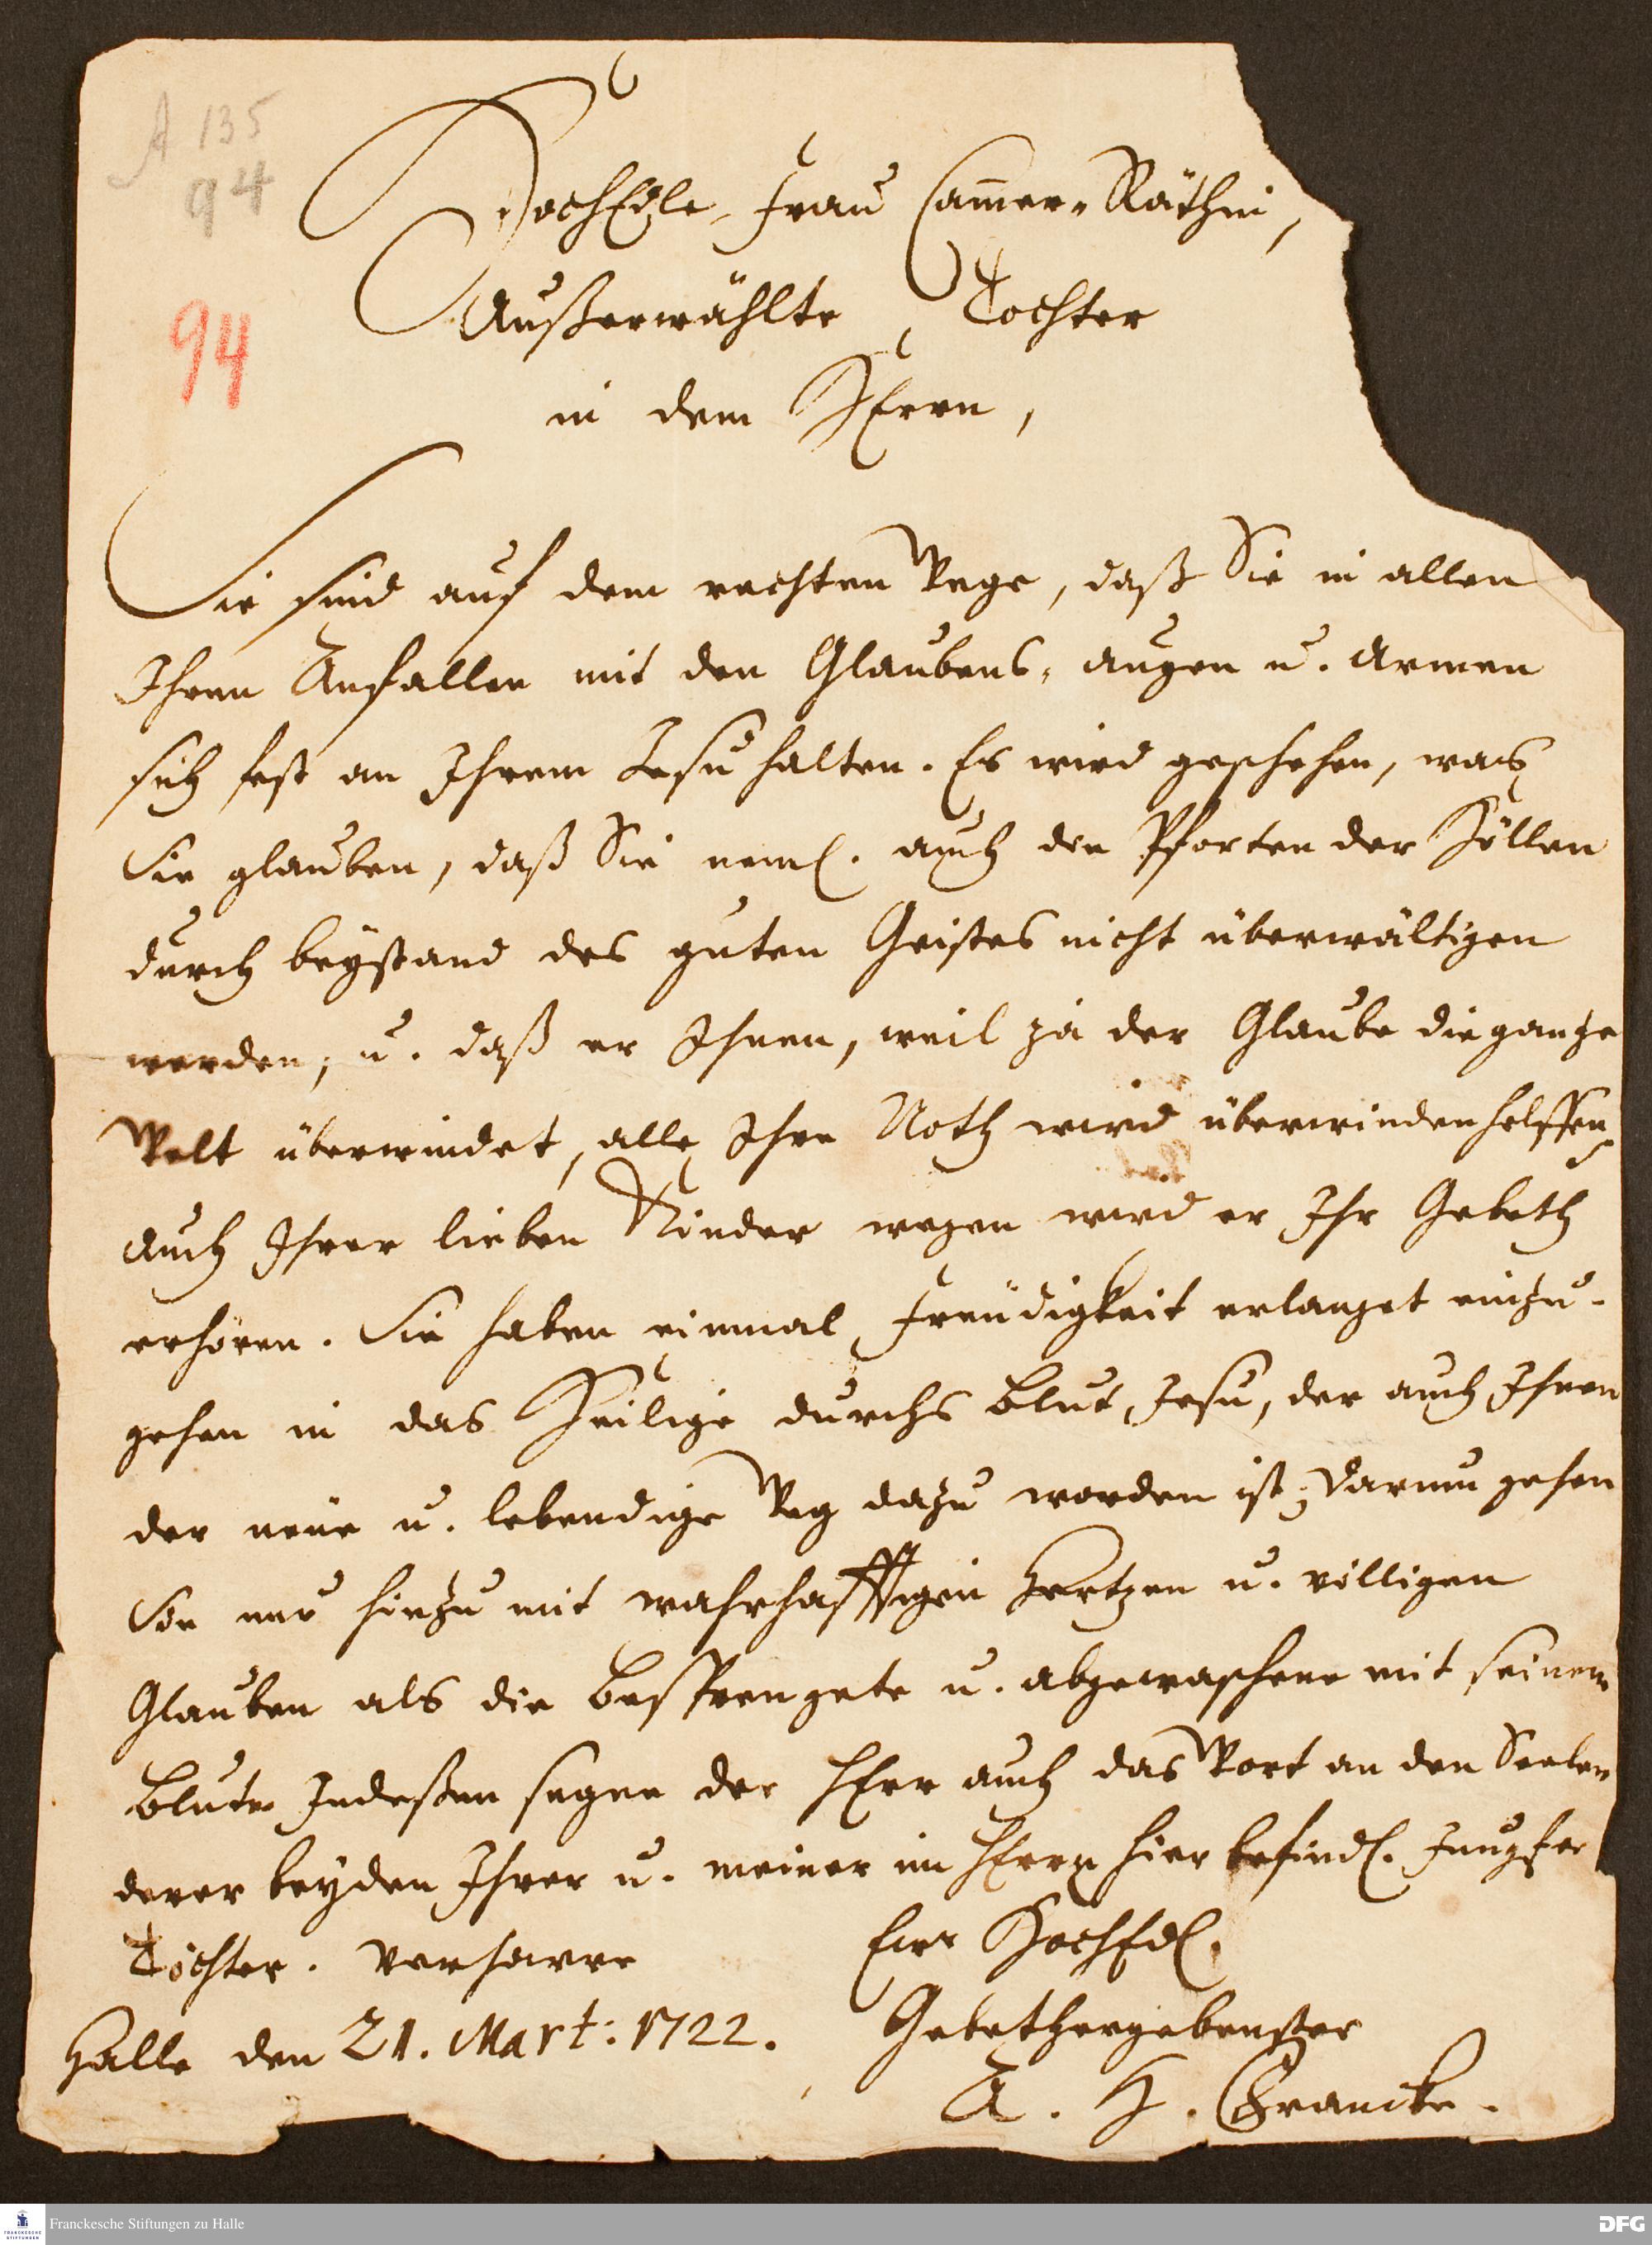 A 135
94
94
HochEdle Frau Cammer-Räthin,
Außerwählte Tochter
in dem HErrn,
Sie sind auf dem rechten Wege, daß Sie in allen
Ihren Anfällen mit den Glaubens-augen u. Armen
sich fest an Ihrem Jesu halten. Es wird geschehen, was
Sie glauben, daß Sie neml. auch die Pforten der Höllen
durch beystand des guten Geistes nicht überwältigen
werden, u. daß er Ihnen, weil ja der Glaube die gantze
Welt überwindet, alle Ihre Noth wird überwinden helffen
auch Ihrer lieben Kinder wegen wird er Ihr Gebeth
erhören. Sie haben einmal Freüdigkeit erlanget einzu-
gehen in das Heilige durchs Blut Jesu, der auch Ihnen
der neüe u. lebendige Weg dazu worden ist; Darum gehen
Sie nur hinzu mit wahrhafftigen Hertzen u. völligen
Glauben als die Besprengete u. abgewaschene mit seinem
Blute. Indeßen segne der HErr auch das Wort an den Seelen
derer beyden Ihrer u. meiner im HErrn hier befindl. Jungfer
Töchter. Verharre
Eur HochEdl.
Gebethergebenster
Halle den 21. Mart: 1722.
A. H. Francke.
Franckesche Stiftungen zu Halle
FRANCKESCHE STIFTUNGEN
DFG